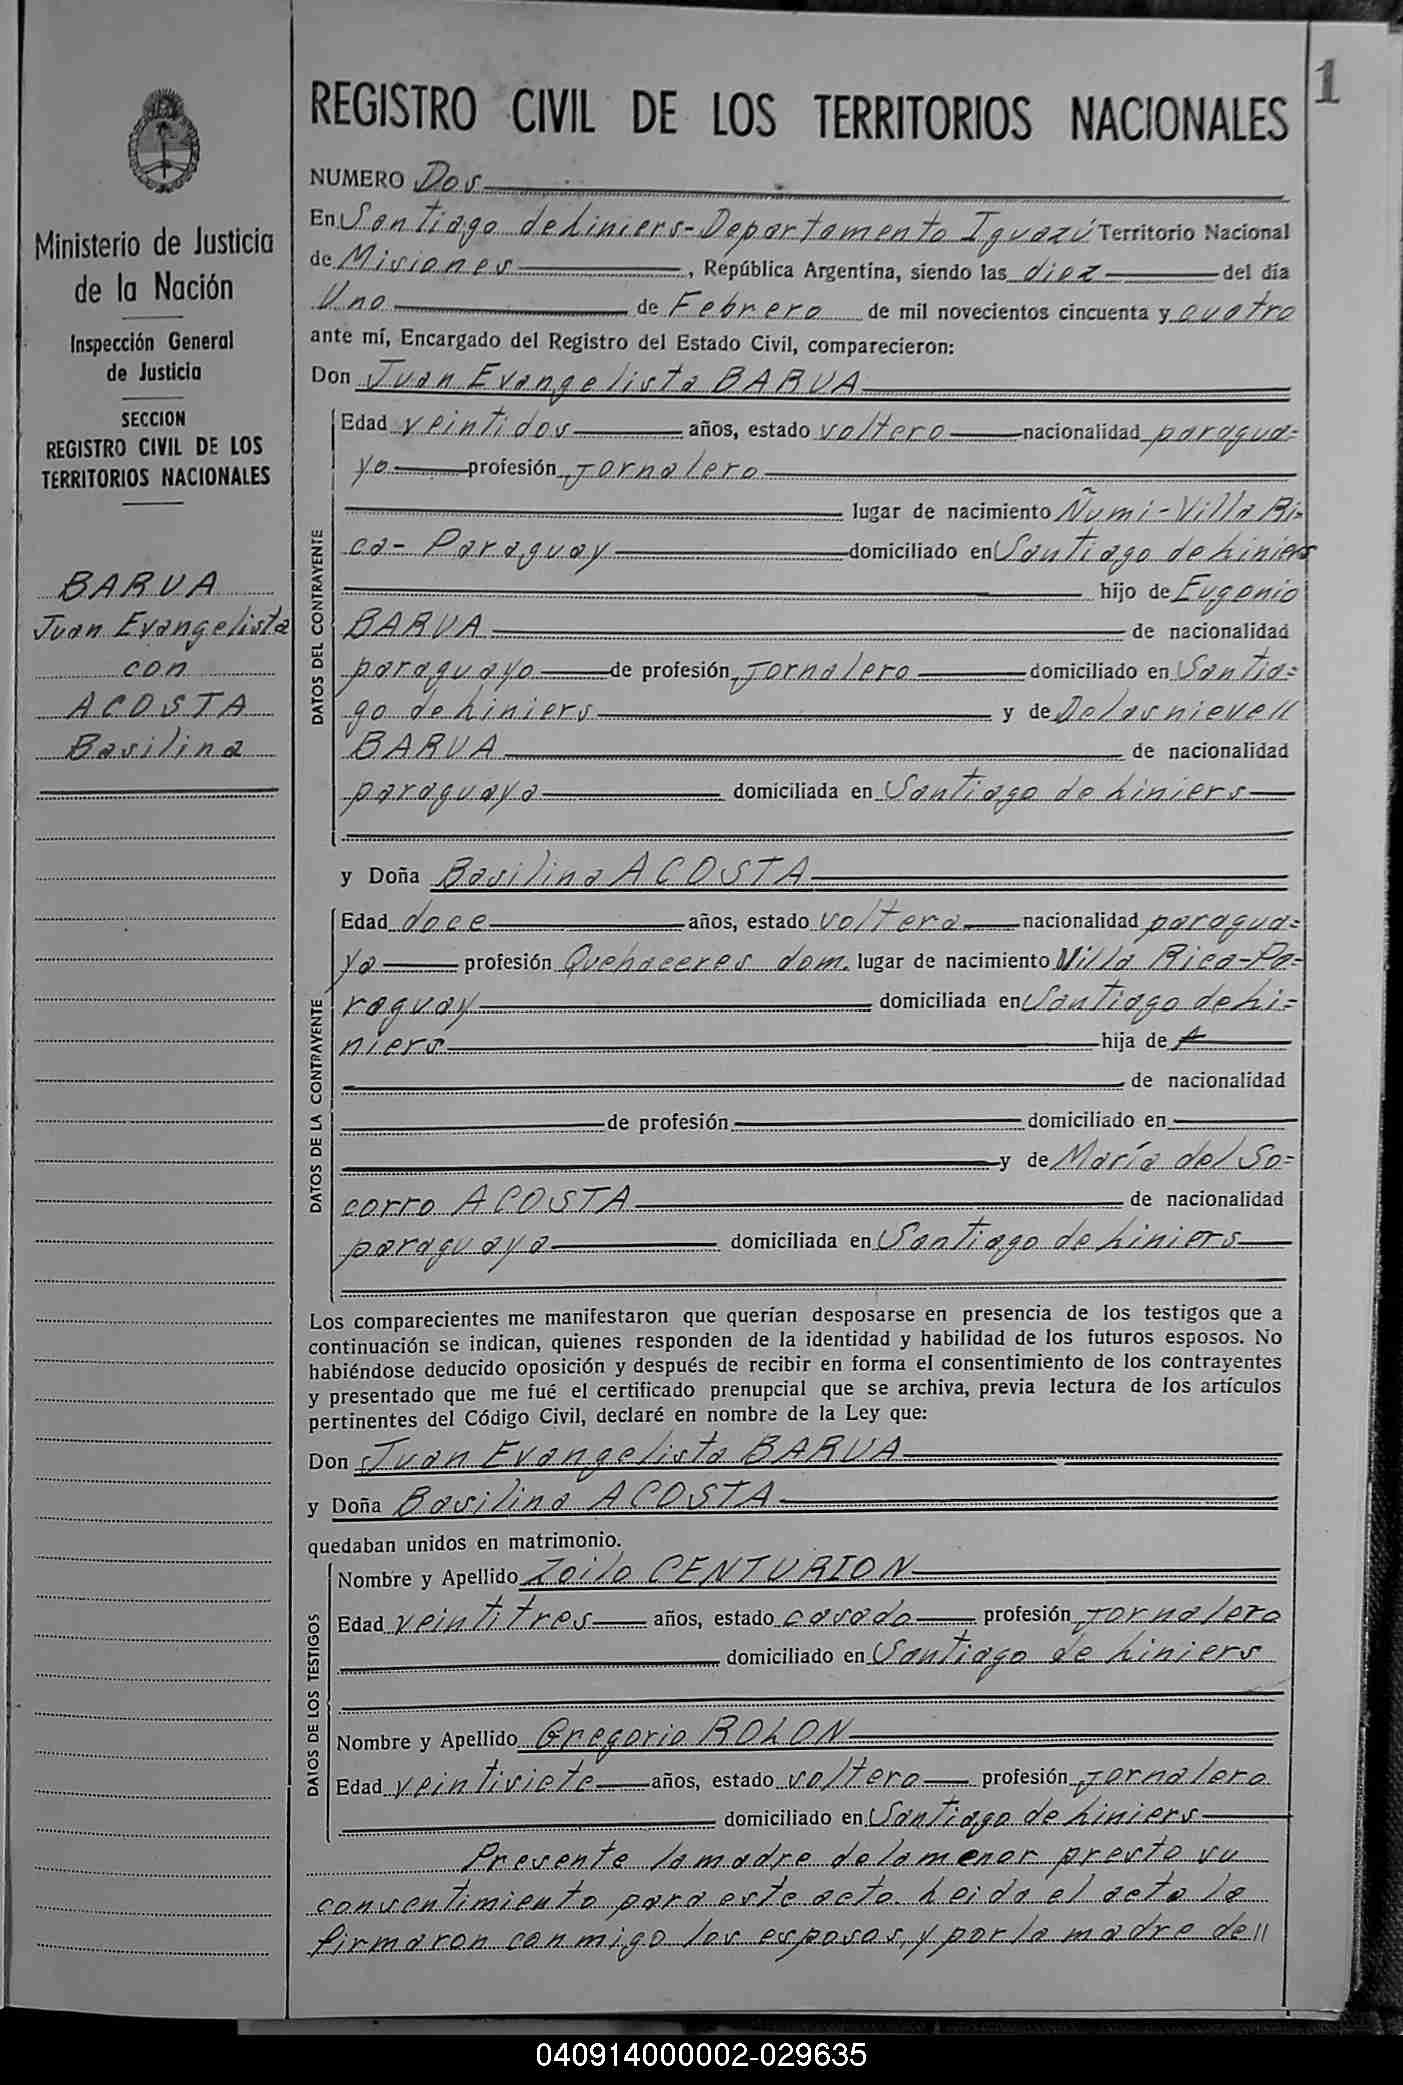 1
Ministerio de Justicia
de la Nación
Inspección General
de Justicia
SECCION
REGISTRO CIVIL DE LOS
TERRITORIOS NACIONALES
BARUA
Juan Evangelista
con
ACOSTA
Basilina
REGISTRO CIVIL DE LOS TERRITORIOS NACIONALES
NUMERO Dos
En Santiago de Liniers-Departamento Iguazú Territorio Nacional
de Misiones, República Argentina, siendo las diez del día
Uno de Febrero de mil novecientos cincuenta y cuatro
ante mí, Encargado del Registro del Estado Civil, comparecieron:
Don Juan Evangelista BARUA
DATOS DEL CONTRAYENTE
Edad veintidos años, estado soltero nacionalidad paragua=
yo profesión Jornalero
lugar de nacimiento Ñumi-Villa Ri=
ca- Paraguay domiciliado en Santiago de Liniers
hijo de Eugenio
BARUA de nacionalidad
paraguayo de profesión Jornalero domiciliado en Santia=
go de Liniers y de Delasnievell
BARUA de nacionalidad
paraguaya domiciliada en Santiago de Liniers
y Doña Basilina ACOSTA
DATOS DE LA CONTRAYENTE
Edad doce años, estado soltera nacionalidad paragua=
ya profesión Quehaceres dom. lugar de nacimiento Villa Rica-Pa=
raguay domiciliada en Santiago de Li=
niers hija de
de nacionalidad
de profesión domiciliado en
y de María del So=
corro ACOSTA de nacionalidad
paraguaya domiciliada en Santiago de Liniers
Los comparecientes me manifestaron que querían desposarse en presencia de los testigos que a
continuación se indican, quienes responden de la identidad y habilidad de los futuros esposos. No
habiéndose deducido oposición y después de recibir en forma el consentimiento de los contrayentes
y presentado que me fué el certificado prenupcial que se archiva, previa lectura de los artículos
pertinentes del Código Civil, declaré en nombre de la Ley que:
Don Juan Evangelista BARUA
y Doña Basilina ACOSTA
quedaban unidos en matrimonio.
DATOS DE LOS TESTIGOS
Nombre y Apellido Zoilo CENTURION
Edad veintitres años, estado casado profesión Jornalero
domiciliado en Santiago de Liniers
Nombre y Apellido Gregorio ROLON
Edad veintisiete años, estado soltero profesión Jornalero
domiciliado en Santiago de Liniers
Presente la madre de la menor presta su
consentimiento para este acto. Leida el acta la
firmaron conmigo los esposos, y por la madre de ll
040914000002-029635